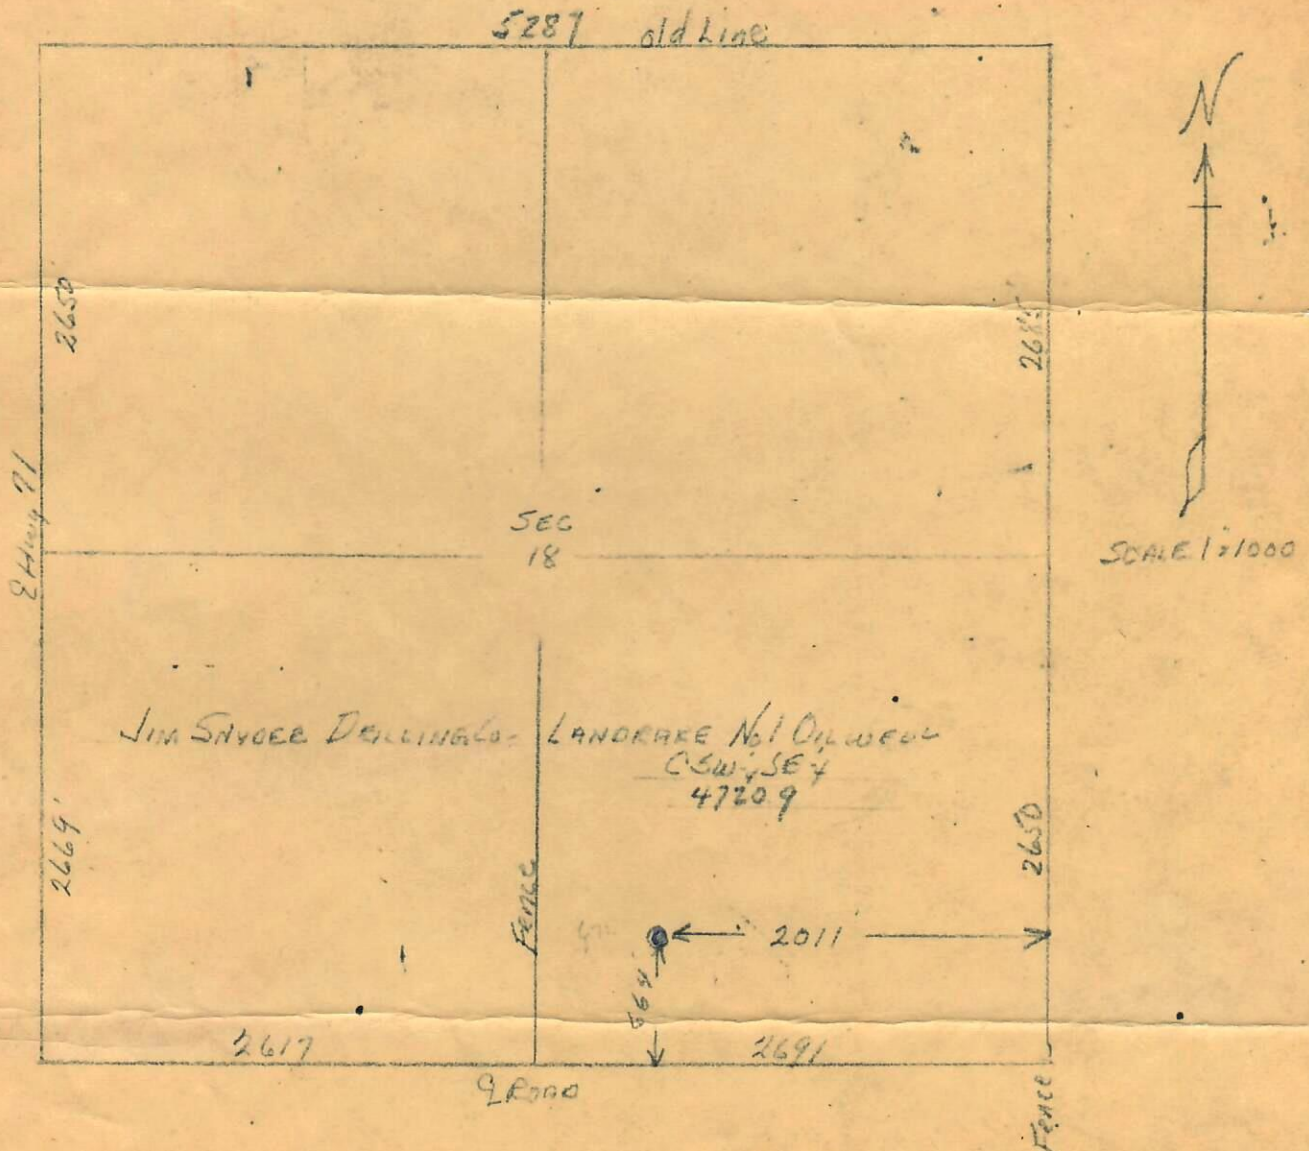 5287 old Line
N
2650'
SEC
18
SCALE 1"=1000
Hwy 71
JIM SNYDER DRILLING Co - LANDRAKE No 1 OILWELL
C SW¼ SE¼
4720 9
2669'
2650
Fence
2011'
664
2617
2691
℄ ROAD
Fence